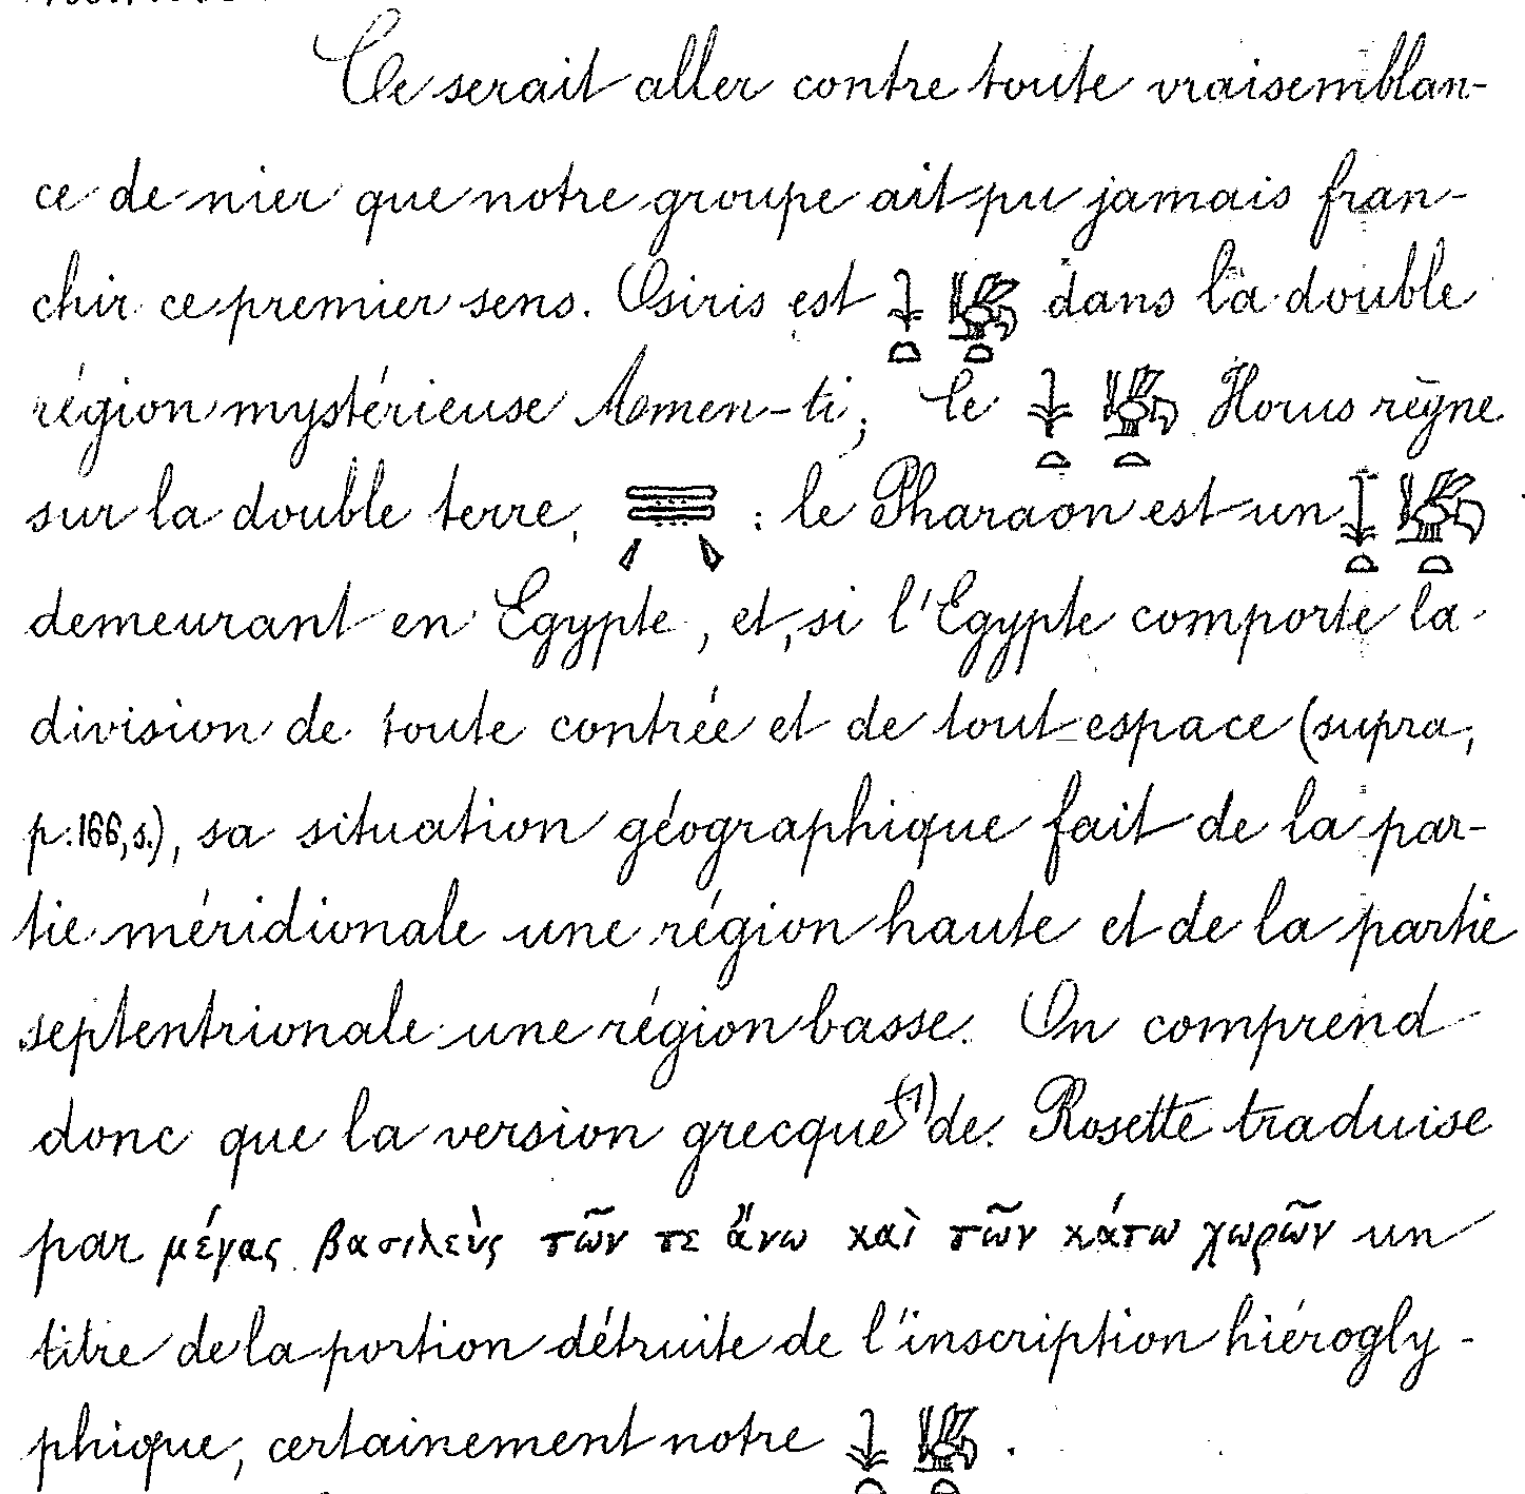 Ce serait aller contre toute vraisemblan-
ce de nier que notre groupe ait pu jamais fran-
chir ce premier sens. Osiris est 𓇓𓏏 𓆤𓏏 dans la double
région mystérieuse Amen-ti; le 𓇓𓏏 𓆤𓏏 Horus règne
sur la double terre, 𓇿𓇿 : le Pharaon est un 𓇓𓏏 𓆤𓏏
demeurant en Egypte, et, si l'Egypte comporte la
division de toute contrée et de tout espace (supra,
p. 166, s.), sa situation géographique fait de la par-
tie méridionale une région haute et de la partie
septentrionale une région basse. On comprend
donc que la version grecque (1) de Rosette traduise
par μέγας βασιλεὺς τῶν τε ἄνω καὶ τῶν κάτω χωρῶν un
titre de la portion détruite de l'inscription hiérogly-
phique, certainement notre 𓇓𓏏 𓆤𓏏 .